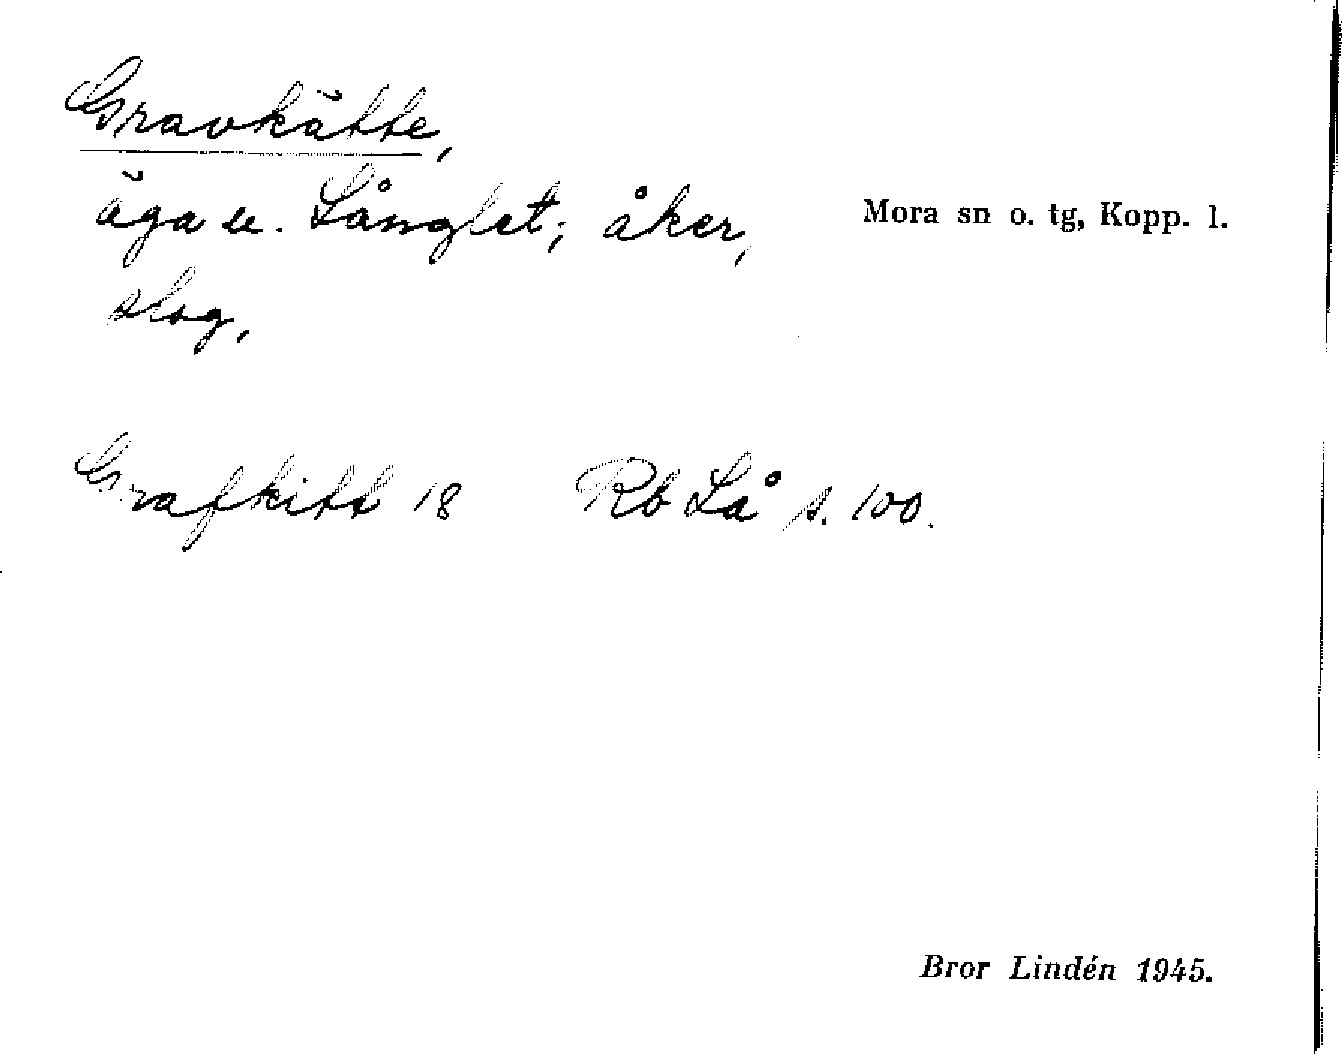 Gravkätte,
äga u. Långlet; åker,
skog.
Mora sn o. tg, Kopp. l.
Grafkitt 18 Rb Lå s. 100.
Bror Lindén 1945.